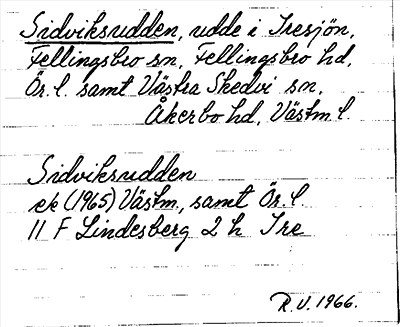 Sidviksudden, udde i Tresjön,
Fellingsbro sn, Fellingsbro hd,
Ör. l. samt Västra Skedvi sn,
Åkerbo hd, Västm. l.
Sidviksudden
ek (1965) Västm., samt Ör. l.
11 F Lindesberg 2 h Tre
R.V. 1966.